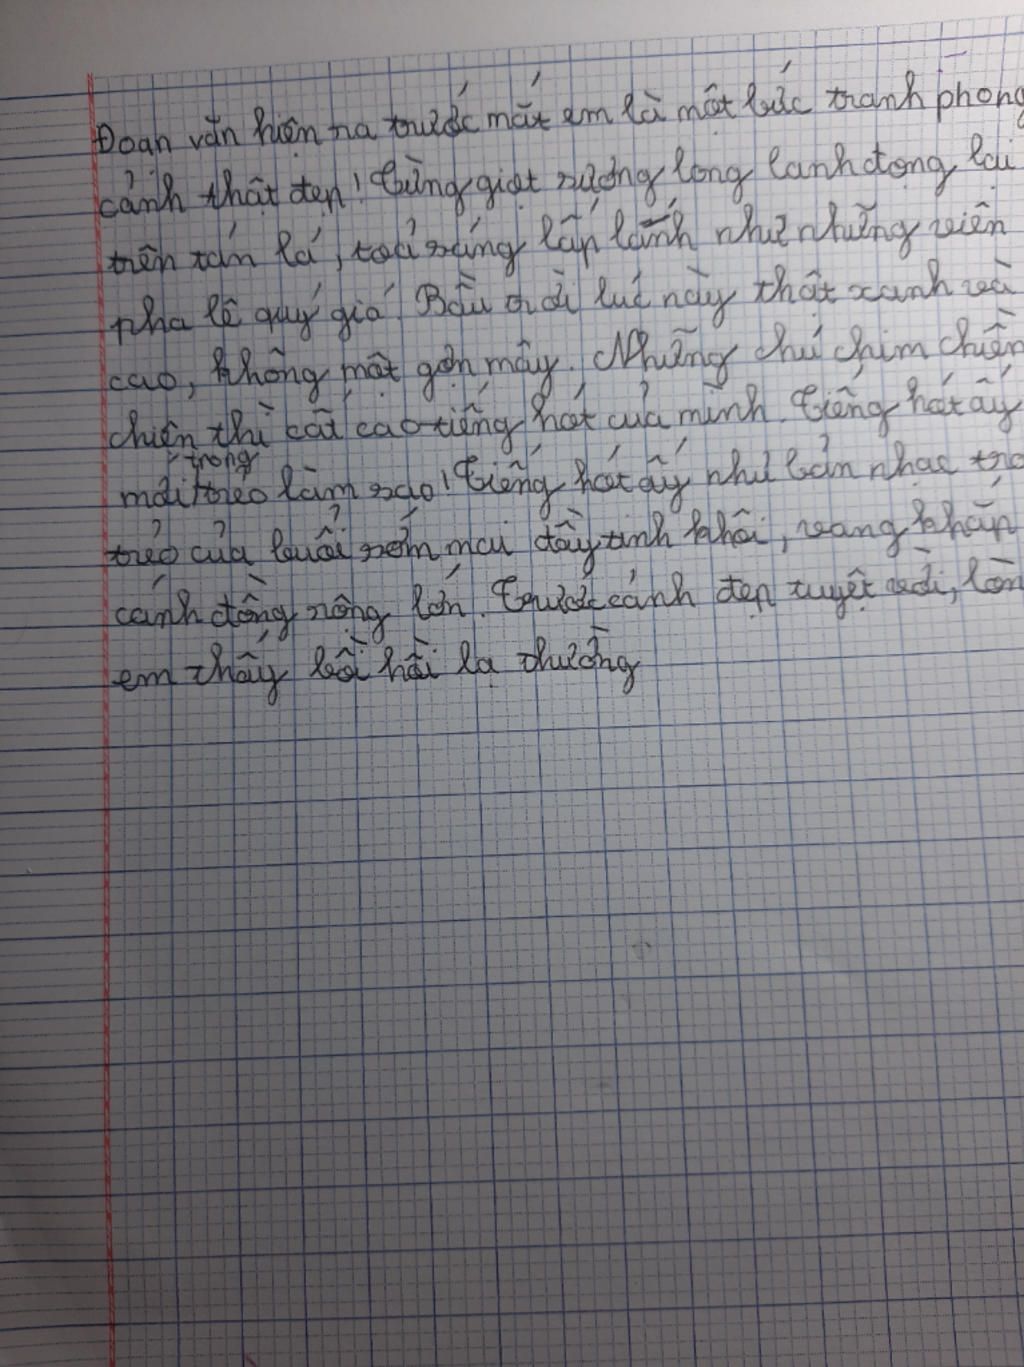 Đoạn văn hiện ra trước mắt em là một bức tranh phong
cảnh thật đẹp! Từng giọt sương long lanh đọng lại
trên tán lá, toả sáng lấp lánh như những viên
pha lê quý giá. Bầu trời lúc này thật xanh và
cao, không một gợn mây. Những chú chim chiền
chiện thì cất cao tiếng hót của mình. Tiếng hót ấy
trong
mới trẻo làm sao! Tiếng hót ấy như bản nhạc tro
trẻo của buổi sớm mai đầy tinh khôi, vang khắp
cánh đồng rộng lớn. Trước cảnh đẹp tuyệt vời, lòn
em thấy bồi hồi lạ thường